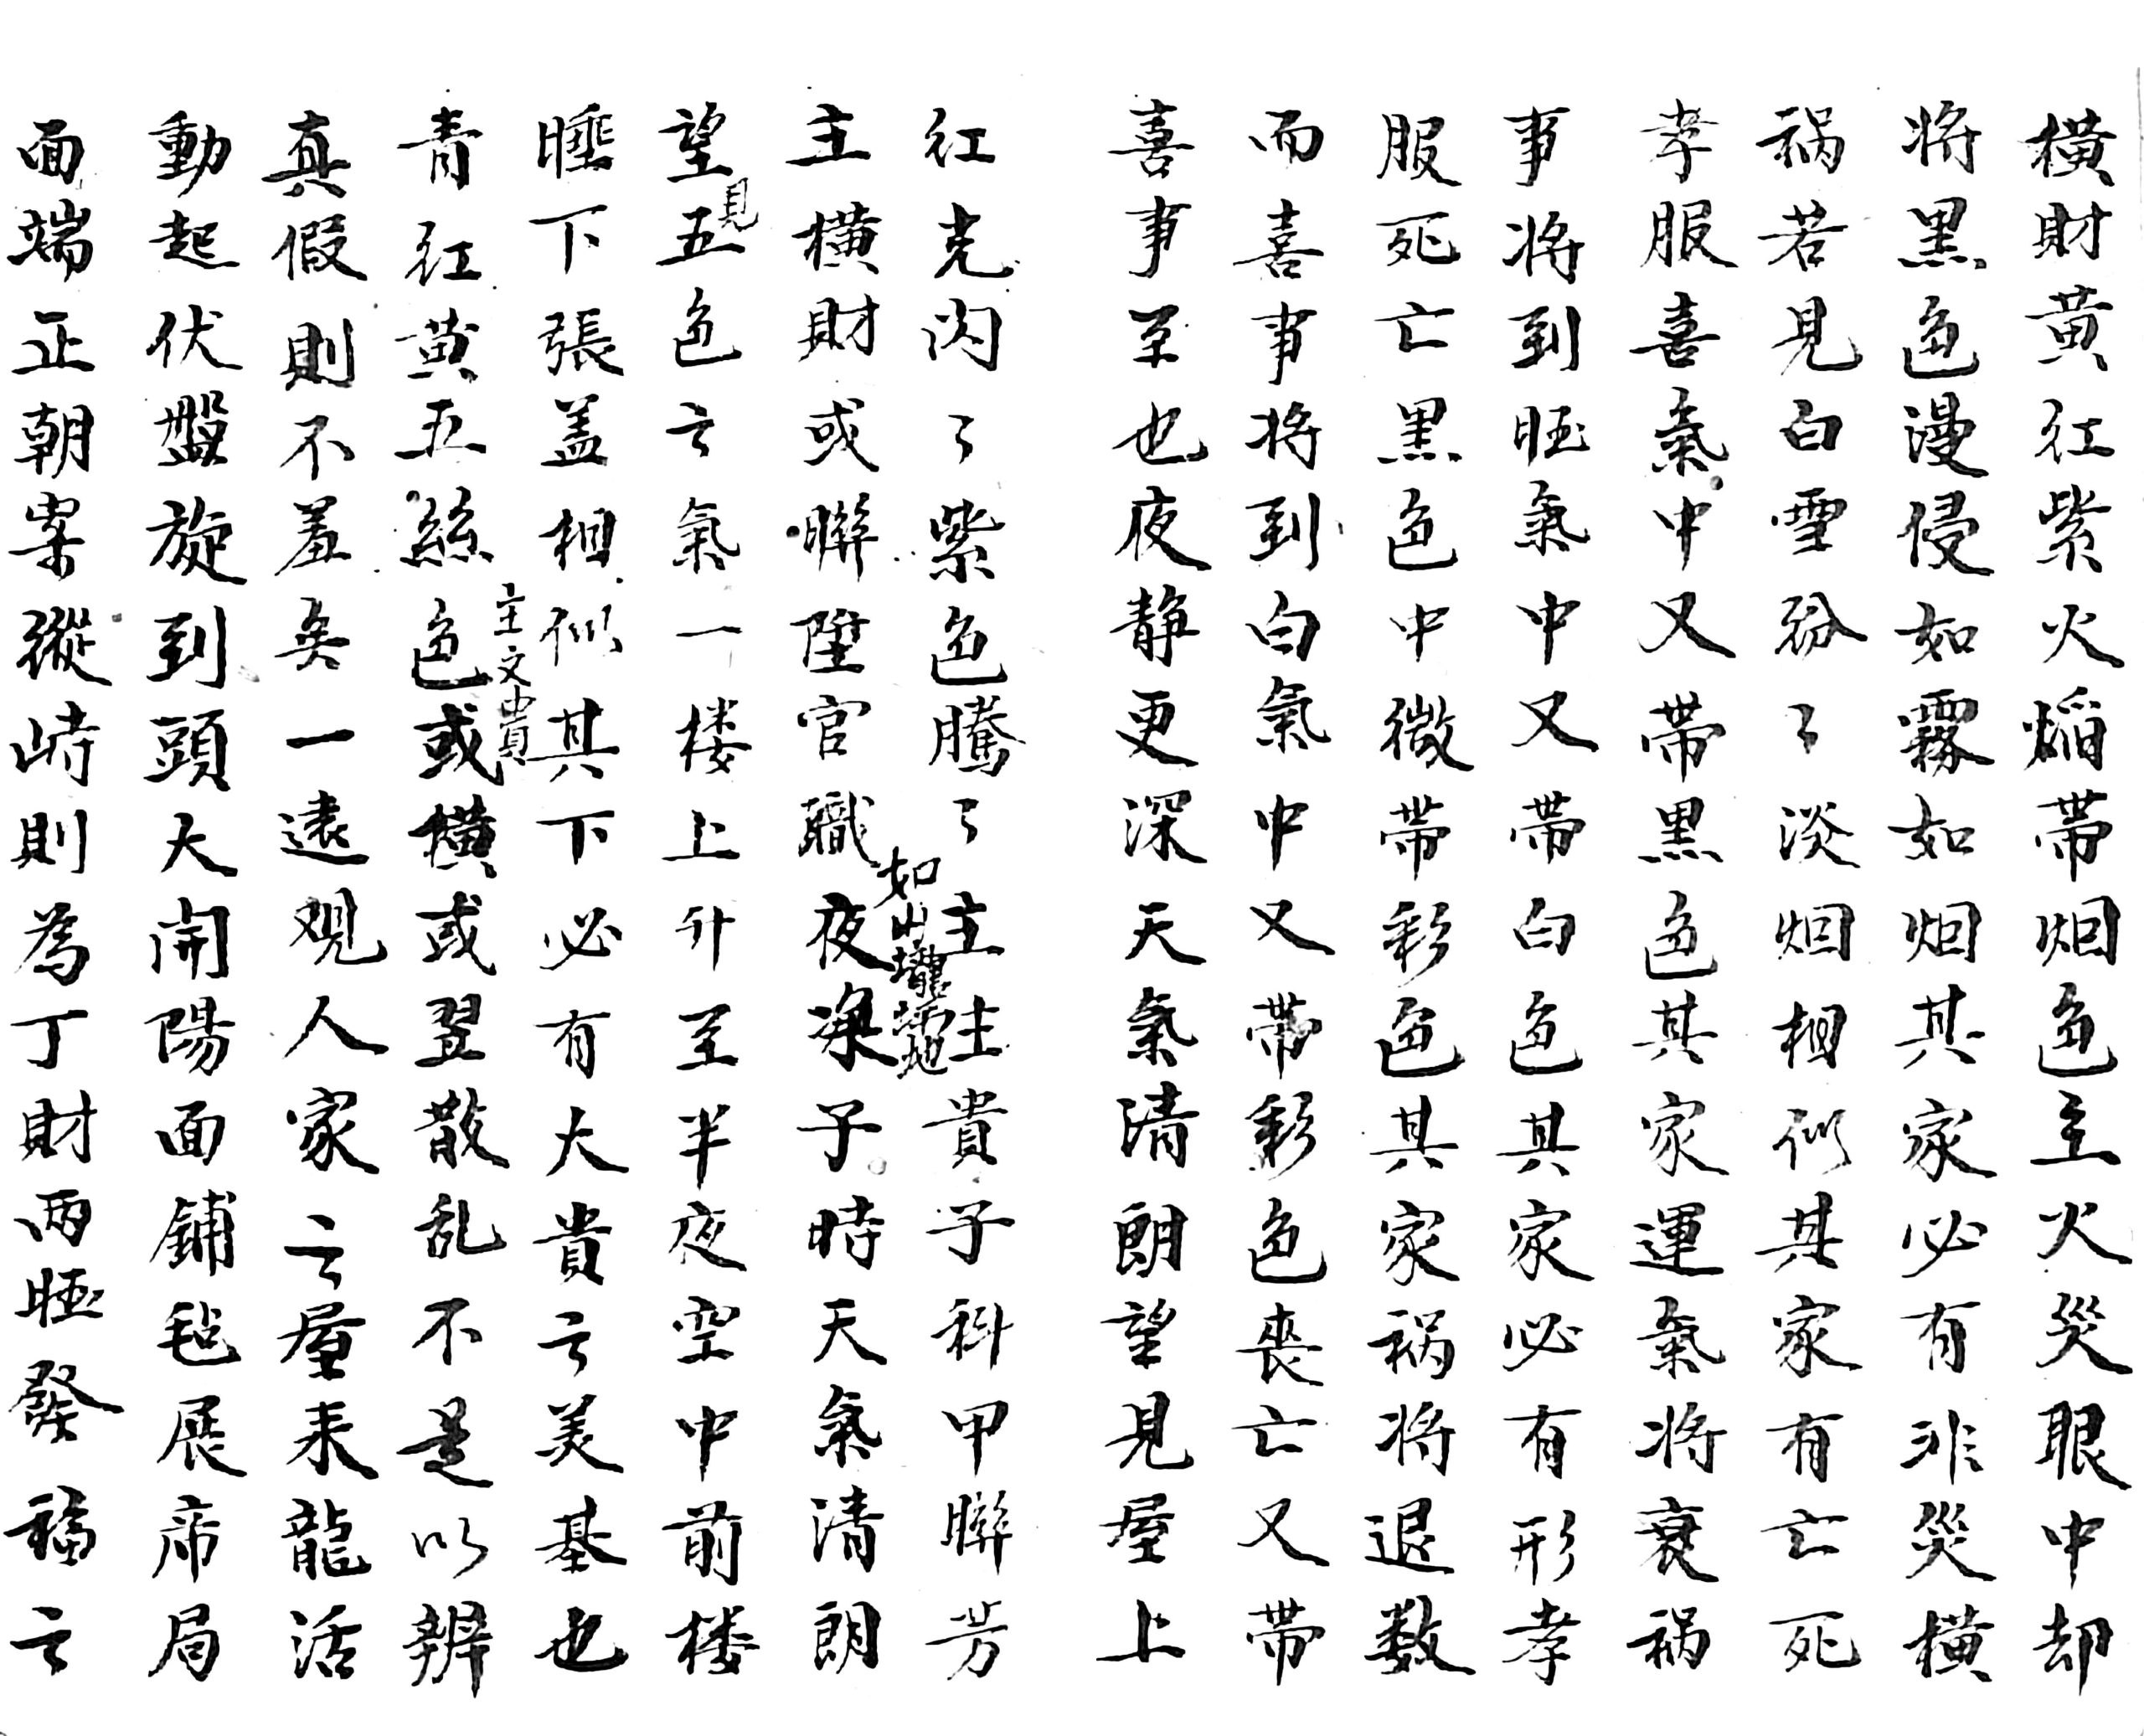 橫財黄红紫火熖带烟色主火災眼中却
将黑色漫侵如霧如烟其家必有非災橫
祸若見白雪纷々淡烟相似其家有亡死
孝服喜氣中又带黑色其家運氣将衰祸
事将到旺氣中又带白色其家必有形孝
服死亡黑色中微带彩色其家祸将退数
而喜事将到白氣中又带彩色丧亡又带
喜事至也夜静更深天氣清朗望見屋上
红光闪々紫色騰々主主貴子科甲聯芳
如山壠墳地
主橫財或聯陞官職夜深子時天氣清朗
望見五色之氣一楼上升至半夜空中前楼
下張盖相似其下必有大貴之美基也
主文貴
青红黄五絲色或橫或翌散乱不是以辨
真假則不羞矣一遠观人家之屋来龍活
動起伏盤旋到頭大開陽面鋪毡展席局
面端正朝案縱峙則為丁財两旺發福之